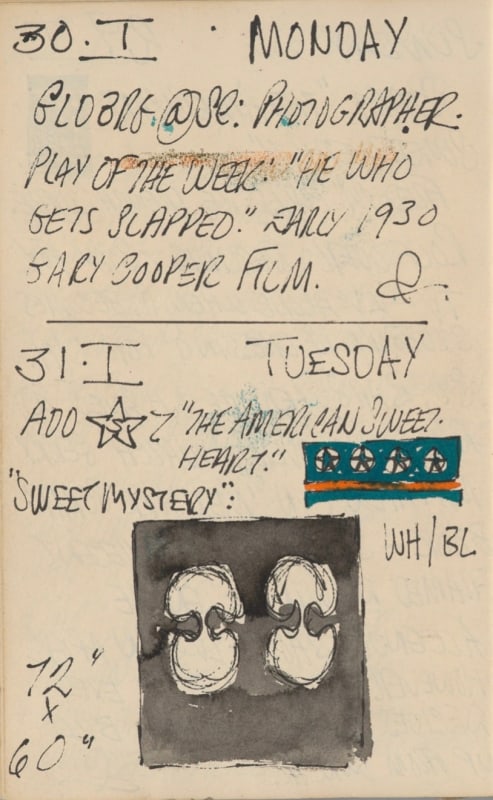 30·I · MONDAY
@ S.C: PHOTOGRAPHER.
PLAY OF THE WEEK: "HE WHO
GETS SLAPPED." EARLY 1930
GARY COOPER FILM.
31·I TUESDAY
ADD "THE AMERICAN SWEET-
HEART."
"SWEET MYSTERY":
WH/BL
72"
X
60"